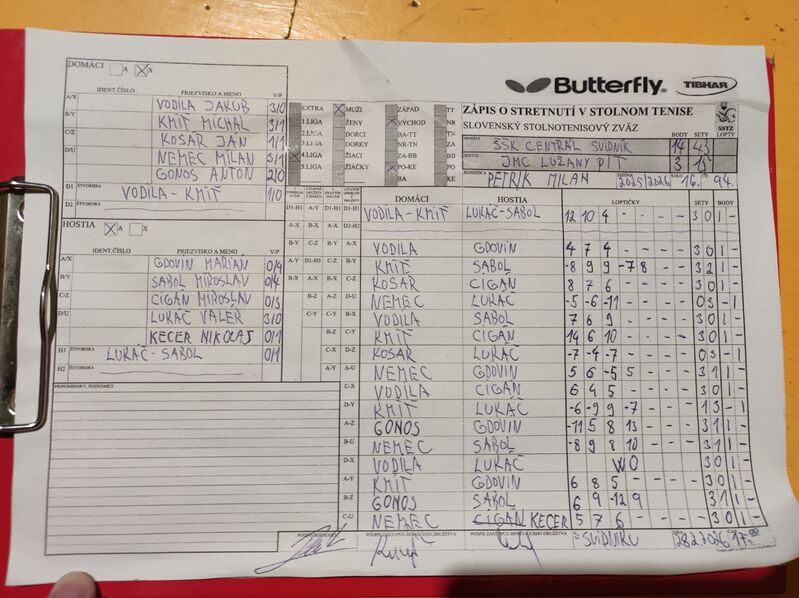 DOMÁCI A X
IDENT.ČÍSLO PRIEZVISKO A MENO V/P
A/X VODILA JAKUB 3/0
B/Y KMIŤ MICHAL 3/1
C/Z KOSÁR JÁN 1/1
D/U NEMEC MILAN 3/1
GONOS ANTON 2/0
D1 ŠTVORHRA VODILA - KMIŤ 1/0
D2 ŠTVORHRA
HOSTIA A X
IDENT.ČÍSLO PRIEZVISKO A MENO V/P
A/X GDOVIN MARIÁN 0/4
B/Y SABOL MIROSLAV 0/4
C/Z CIGÁN MIROSLAV 0/3
D/U LUKÁČ VALÉR 3/0
KECER NIKOLAJ 0/1
H1 ŠTVORHRA LUKÁČ - SABOL 0/1
H2 ŠTVORHRA
PRIPOMIENKY, POZNÁMKY
Butterfly TIBHAR
EXTRA MUŽI ZÁPAD TT
1.LIGA ŽENY VÝCHOD NR
2.LIGA DORCI BA-TT TN
3.LIGA DORKY TN-NR ZA
4.LIGA ŽIACI ZA-BB BB
5.LIGA ŽIAČKY PO-KE PO
BA KE
ZÁPIS O STRETNUTÍ V STOLNOM TENISE
SLOVENSKÝ STOLNOTENISOVÝ ZVÄZ
SSTZ
BODY SETY LOPTY
DOMÁCI ŠSK CENTRÁL SVIDNÍK 14 43
HOSTIA JMC LUŽANY P/T 3 15
ROZHODCA PETRÍK MILAN 2025/2026 KOLO 16. 94.
DOMÁCI HOSTIA LOPTIČKY SETY BODY
D1-H1 VODILA-KMIŤ LUKÁČ-SABOL 12 10 4 - - - - 3 0 1 -
D2-H2
VODILA GDOVIN 4 7 4 - - - - 3 0 1 -
KMIŤ SABOL -8 9 9 -7 8 - - 3 2 1 -
KOSÁR CIGÁN 8 7 6 - - - - 3 0 1 -
D-U NEMEC LUKÁČ -5 -6 -11 - - - - 0 3 - 1
B-X VODILA SABOL 7 6 9 - - - - 3 0 1 -
C-Y KMIŤ CIGÁN 14 6 10 - - - - 3 0 1 -
D-Z KOSÁR LUKÁČ -7 -4 -7 - - - - 0 3 - 1
A-U NEMEC GDOVIN 5 6 -5 5 - - - 3 1 1 -
C-X VODILA CIGÁN 6 4 5 - - - - 3 0 1 -
D-Y KMIŤ LUKÁČ -6 -9 9 -7 - - - 1 3 - 1
A-Z GONOS GDOVIN -11 5 8 13 - - - 3 1 1 -
B-U NEMEC SABOL -8 9 8 10 - - - 3 1 1 -
D-X VODILA LUKÁČ WO 3 0 1 -
A-Y KMIŤ GDOVIN 6 8 5 - - - - 3 0 1 -
B-Z GONOS SABOL 6 9 -12 9 - - - 3 1 1 -
C-U NEMEC CIGÁN KECER 5 7 6 - - - - 3 0 1 -
PODPIS ROZHODCU PODPIS ZÁSTUPCU DOMÁCEHO DRUŽSTVA PODPIS ZÁSTUPCU HOSŤUJÚCEHO DRUŽSTVA SVIDNÍKU 28.2.2026 17.00